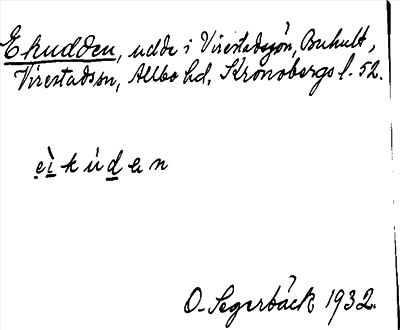 Ekudden, udde i Virestadsjön, Buhult,
Virestads sn, Allbo hd, Kronobergs l. 52.
ei̱ k ú d̲ e n
O. Segerbäck 1932.